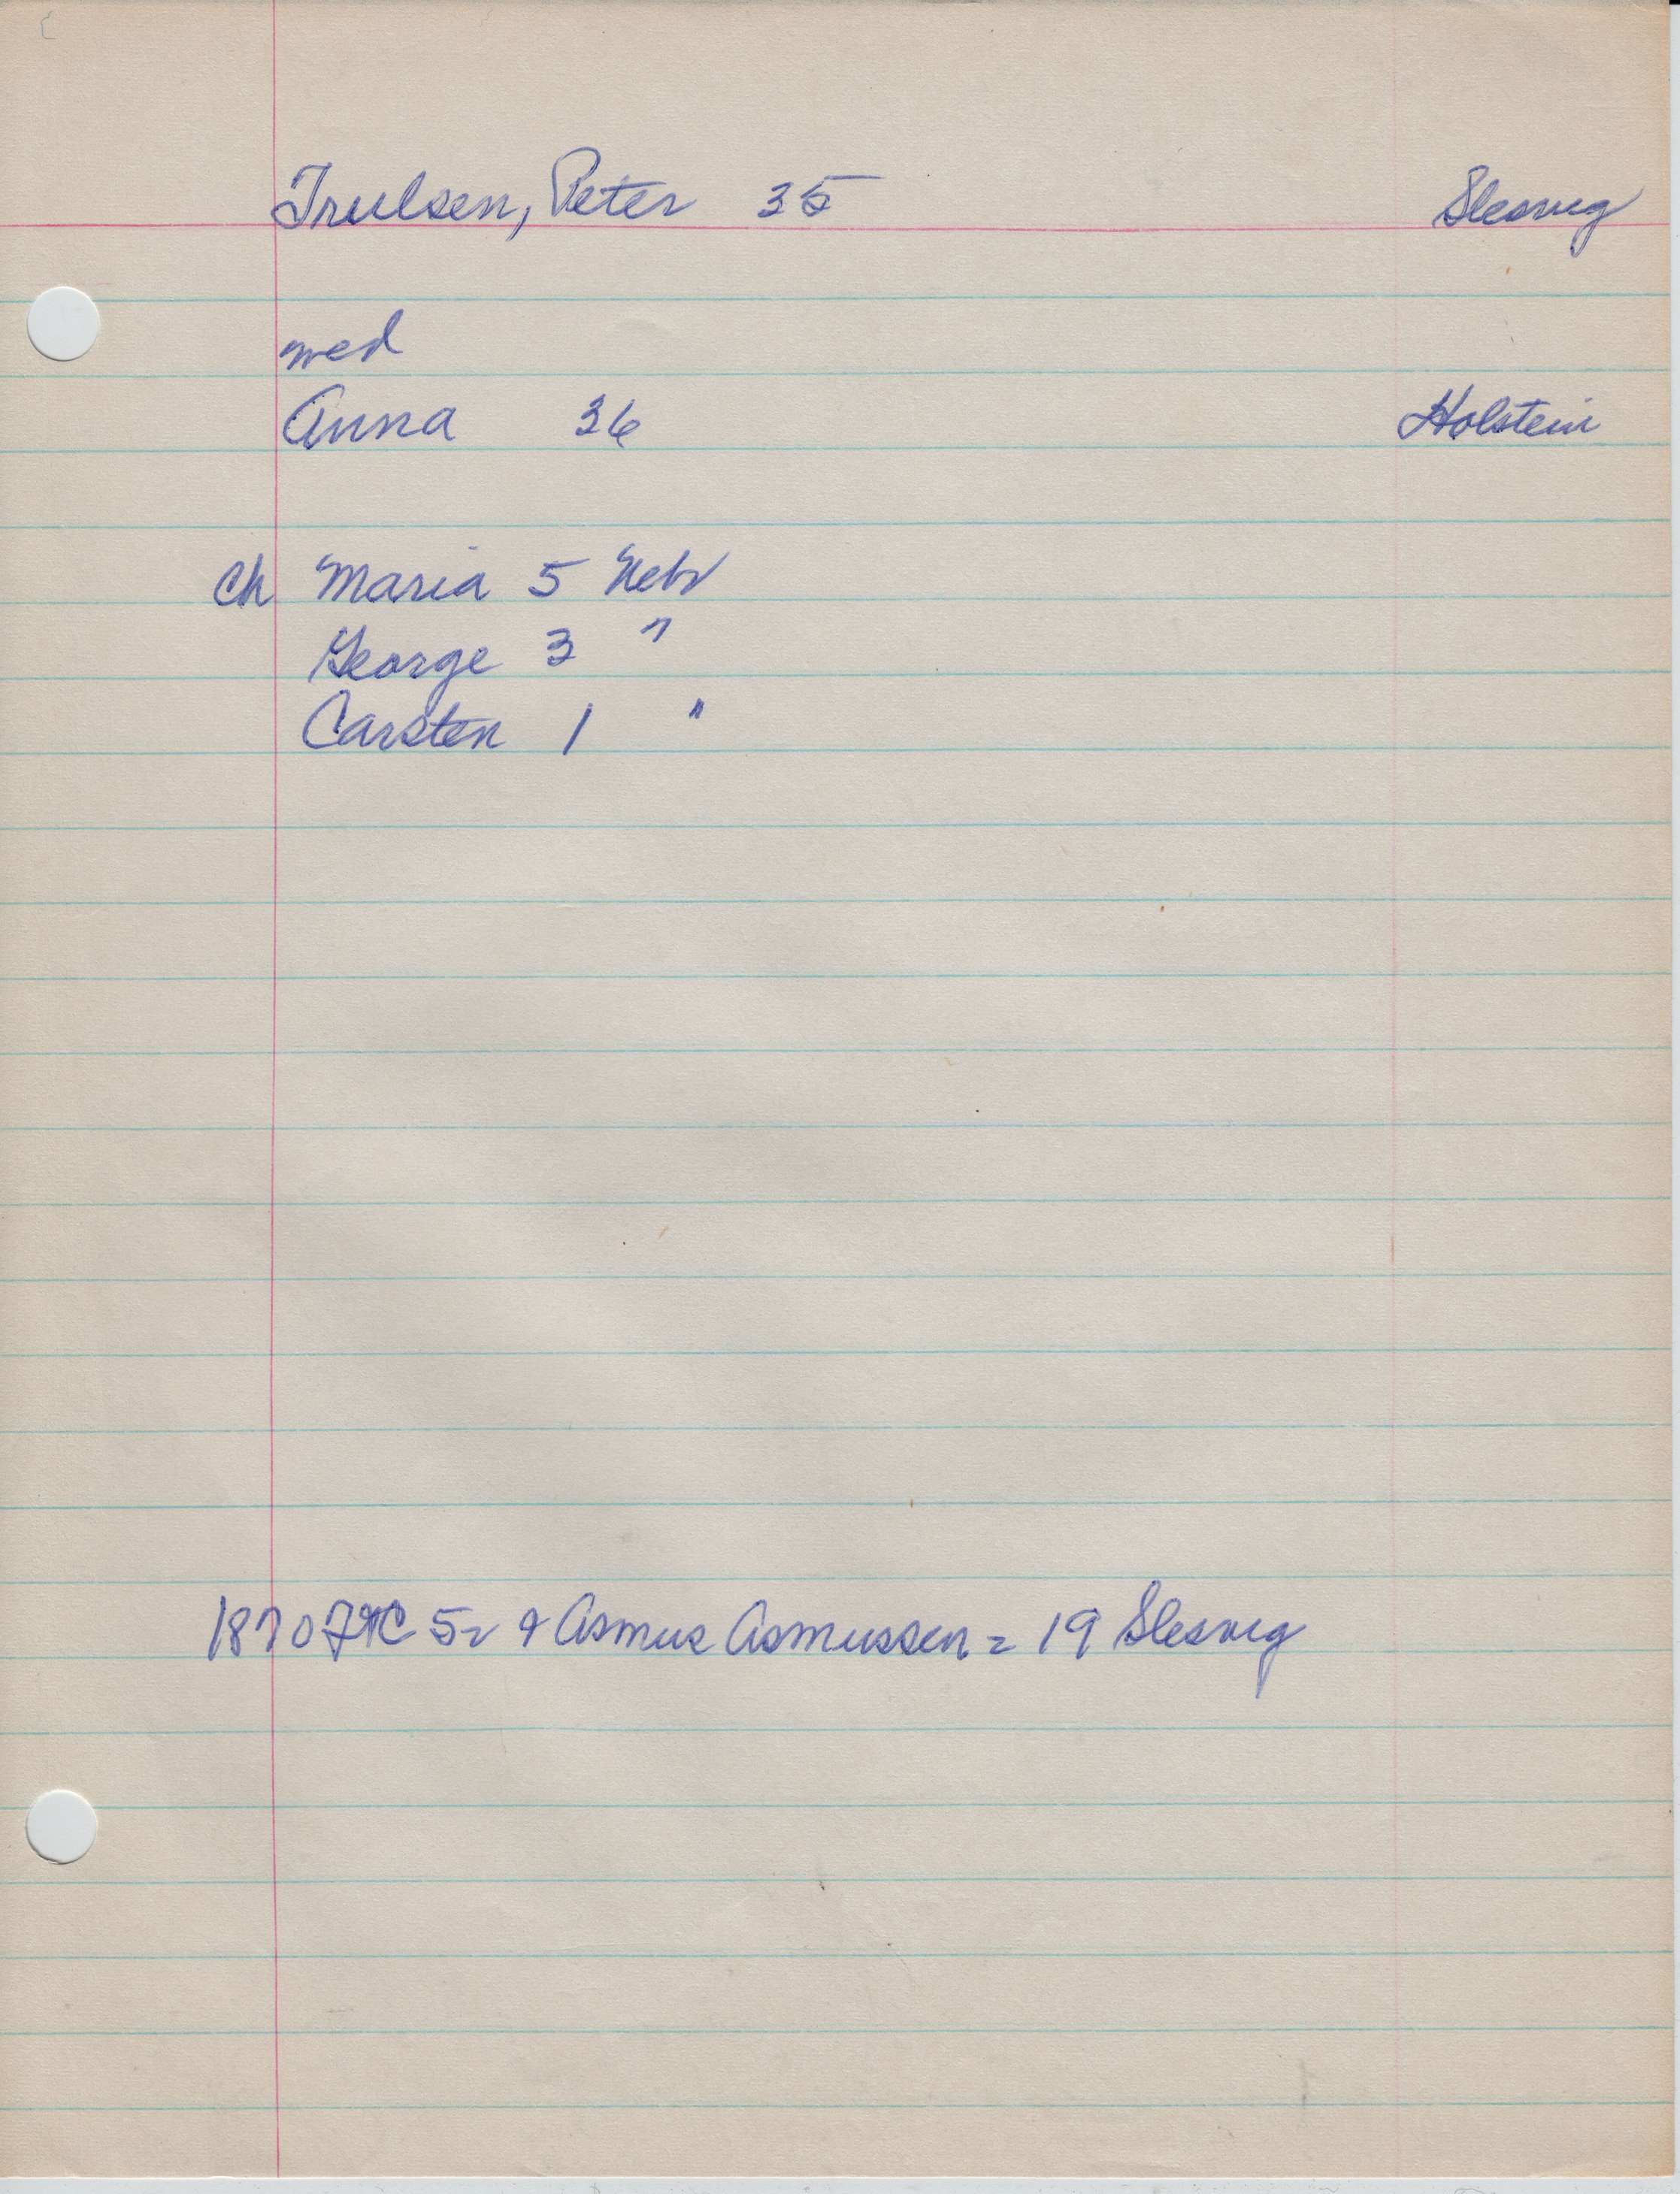 Trulsen, Peter 35 Slesvig
med
Anna 36 Holstein
Ch Maria 5 Nebr
George 3 "
Carsten 1 "
1870 52 & Asmus Asmussen = 19 Slesvig